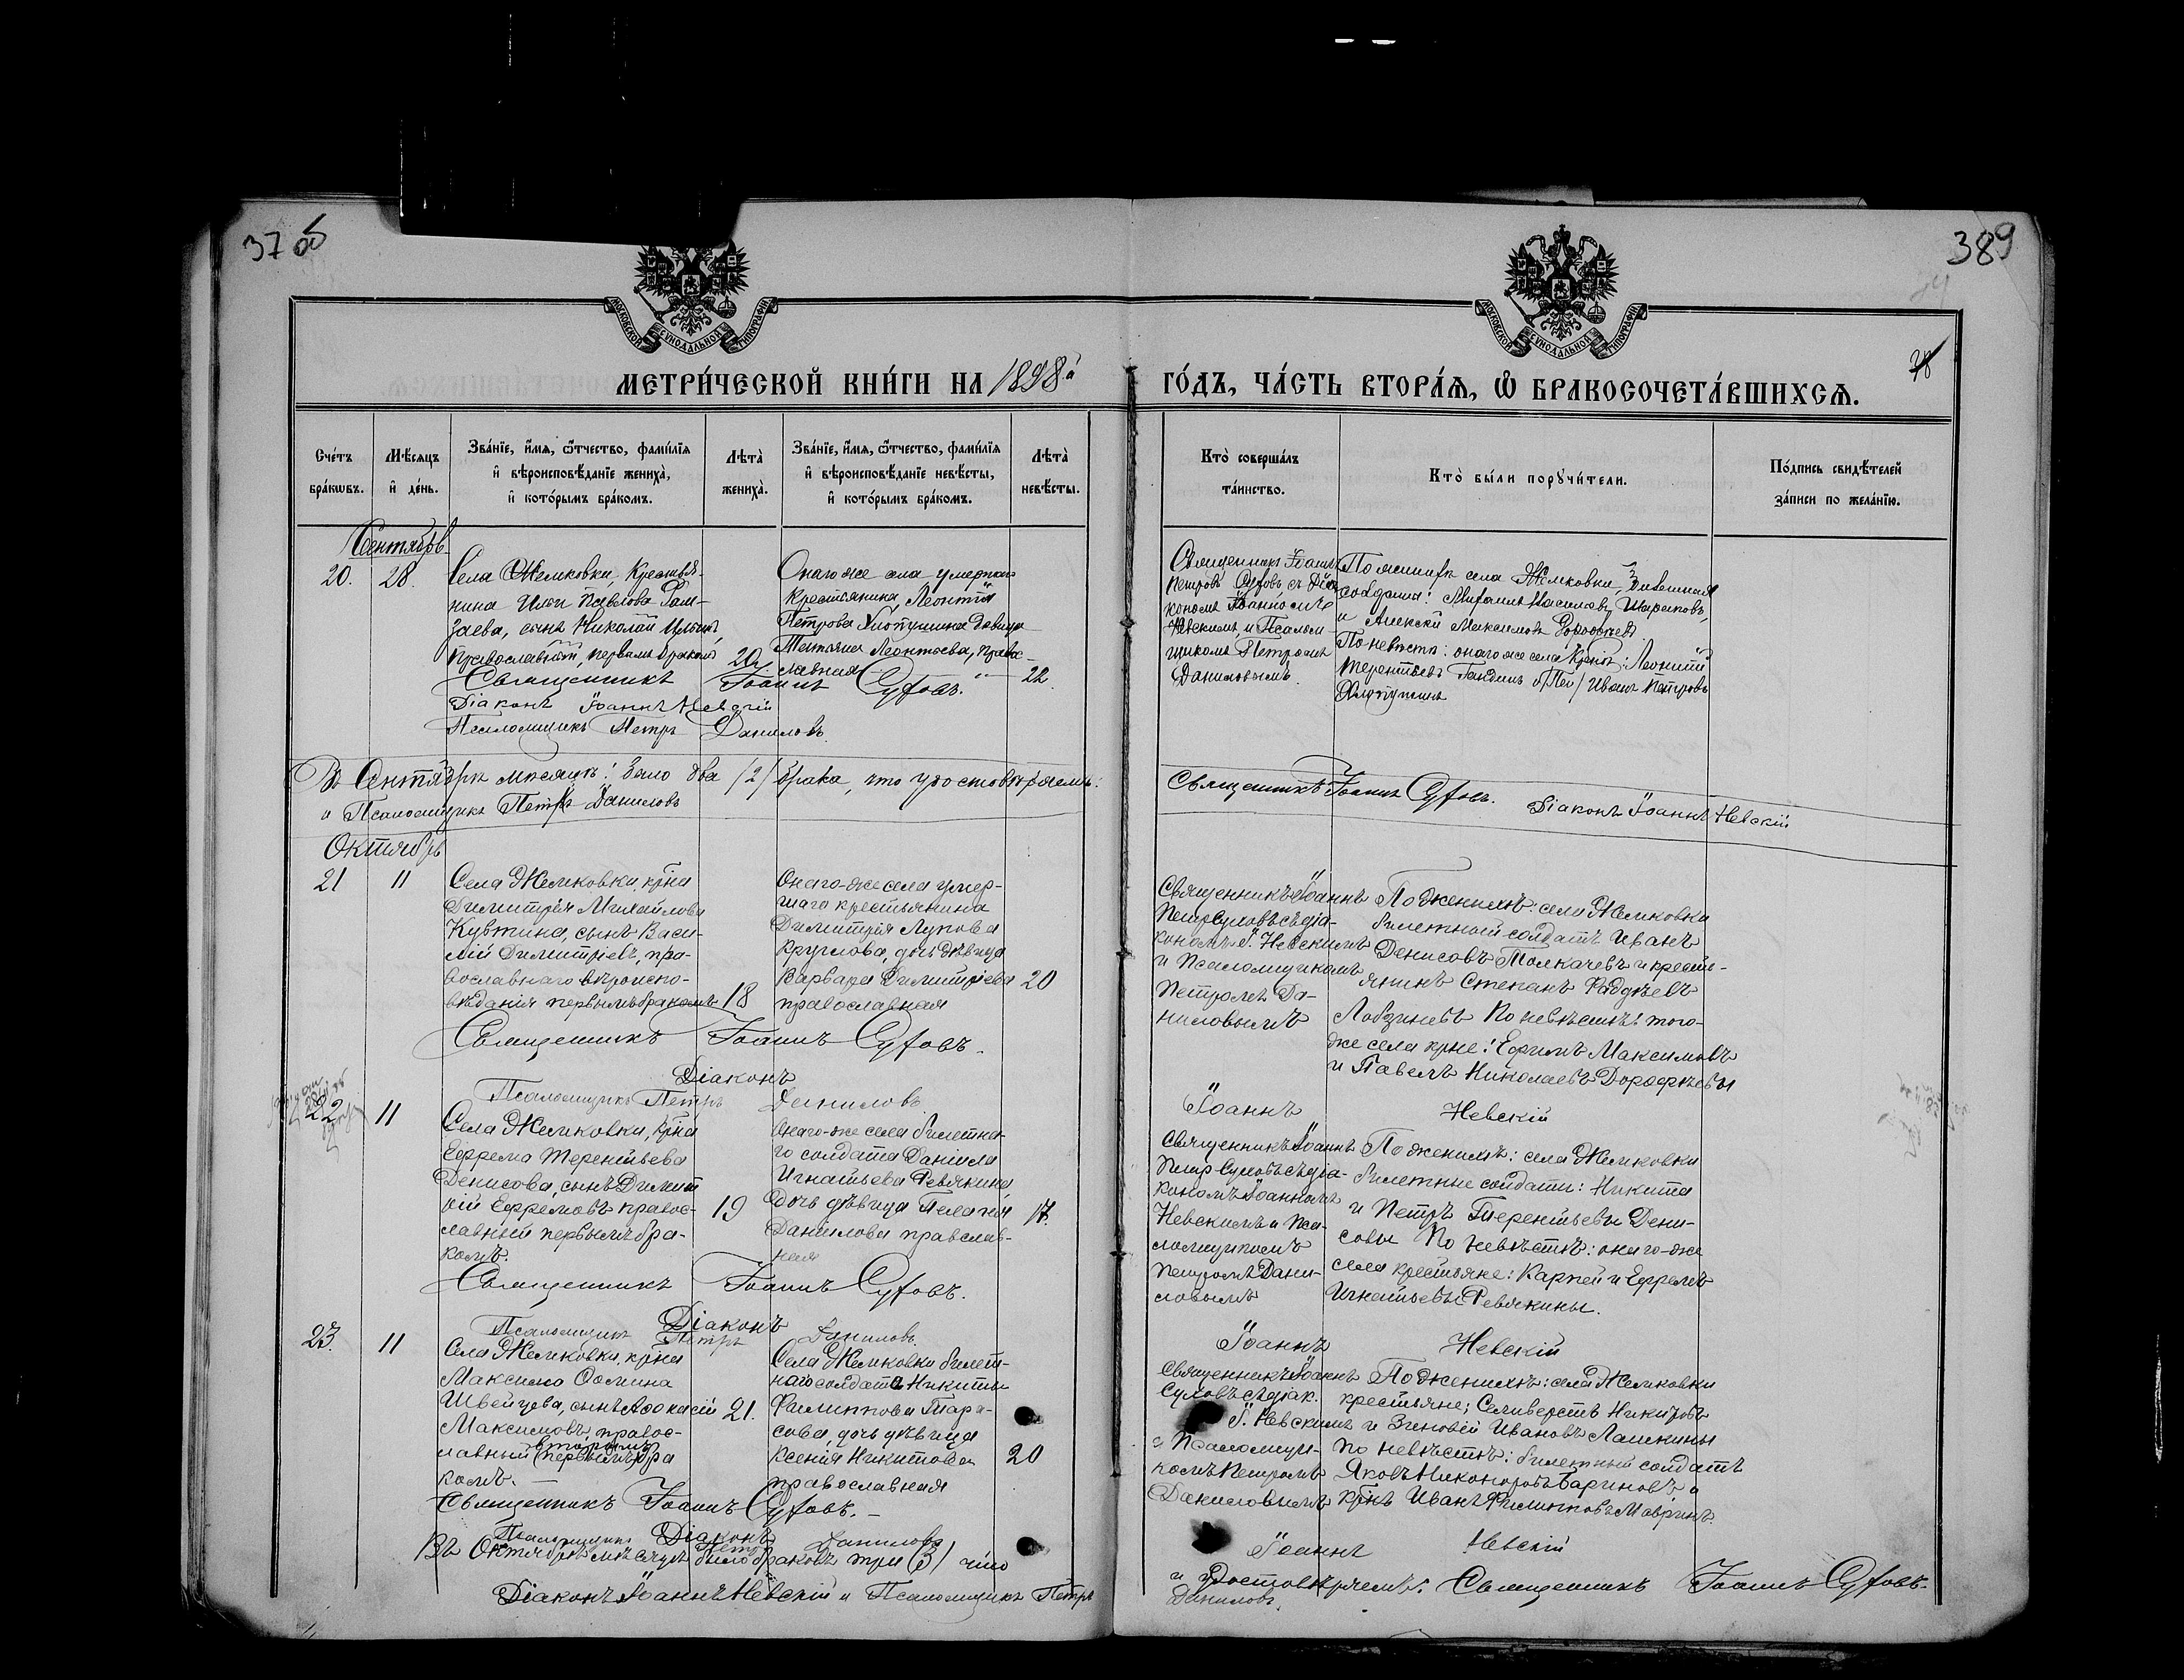 37 об
389
МОСКОВСКОЙ СУНОДАЛЬНОЙ ТИПОГРАФІИ
МОСКОВСКОЙ СУНОДАЛЬНОЙ ТИПОГРАФІИ
МЕТРИ́ЧЕСКОЙ КНИ́ГИ НА 1898й
ГО́ДЪ, ЧА́СТЬ ВТОРА́Ѧ, Ѡ҆ БРАКОСОЧЕТА́ВШИХСѦ.
Сче́тъ бра́кѡвъ.
Мѣ́сяцъ и҆ де́нь.
Зва́нїе, и҆́мѧ, ѻ҆́тчество, фами́лїѧ и҆ вѣроисповѣ́данїе жениха̀, и҆ кото́рымъ бра́комъ.
Лѣта̀ жениха̀.
Зва́нїе, и҆́мѧ, ѻ҆́тчество, фами́лїѧ и҆ вѣроисповѣ́данїе невѣ́сты, и҆ кото́рымъ бра́комъ.
Лѣта̀ невѣ́сты.
Кто̀ соверша́лъ та́инство.
Кто̀ бы́ли порꙋчи́тели.
По́дпись свидѣ́телей за́писи по жела́нїю.
Сентябрь
20.
28.
Села Жемковки, крестья-
нина Ильи Павлова
заева, сынъ Николай Ильинъ,
Православный, первымъ бракомъ
20
Онаго же села умершаго
крестьянина, Леонтія
Петрова девица
Татьяна Леонтьева, право-
славная
22
Священникъ Іоаннъ
Петровъ Суховъ, съ Діа
кономъ Іоанномъ
Невскимъ, и Псалом-
щикомъ Петромъ
Даниловымъ.
По женихѣ села Жемковки,
солдаты:
и Алексѣй Максимовъ
По невѣстѣ: онаго же села Леонтій
Терентьевъ Иванъ Петровъ
Священникъ Іоаннъ Суховъ.
Діаконъ Іоаннъ Невскій
Псаломщикъ Петръ Даниловъ.
Въ Сентябрѣ мѣсяцѣ: было два /2/ брака, что удостовѣряемъ:
Священникъ Іоаннъ Суховъ. Діаконъ Іоаннъ Невскій
и Псаломщикъ Петръ Даниловъ
Октябрь
21
11
Села Жемковки, крна
Димитрія Михайлова
Кувтина, сынъ Васи-
лій Димитріевъ, пра-
вославнаго вѣроиспо-
вѣданія первымъ бракомъ
18
Онаго-же села умер-
шаго крестьянина
Димитрія Лупова
Круглова, дочь дѣвица
Варвара Димитріева
православная
20
Священникъ Іоаннъ
Петр Суховъ съ діа-
кономъ І. Невскимъ
и Псаломщикомъ
Петромъ Да-
ниловымъ
По женихѣ: села Жемковки
билетный солдатъ Иванъ
Денисовъ Толкачевъ и кресть-
янинъ Степанъ Фадѣевъ
Лобзиневъ По невѣстѣ: того-
же села крне: Ефимъ Максимовъ
и Павелъ Николаевъ Дорофѣевы
Священникъ Іоаннъ Суховъ.
Діаконъ
Іоаннъ Невскій
Псаломщикъ Петръ Даниловъ
22
11
Села Жемковки, крна
Ефрема Терентьева
Денисова, сынъ Димит
рій Ефремовъ правос-
лавный первымъ бра-
комъ.
19
Онаго-же села билетна-
го солдата Даніила
Игнатьева Ревякина
дочь дѣвица Пелагія
Данилова православ-
ная
17.
Священникъ Іоаннъ
Петр Суховъ съ діа-
кономъ Іоанномъ
Невскимъ и Пса-
ломщикомъ
Петромъ Дани-
ловымъ
По женихѣ: села Жемковки
билетные солдаты: Никита
и Петръ Терентьевы Дени-
совы По невѣстѣ: онаго-же
села крестьяне: Карпей и Ефремъ
Игнатьевы Ревякины.
Священникъ Іоаннъ Суховъ.
Діаконъ
Іоаннъ Невскій
Псаломщикъ Петръ Даниловъ.
23.
11
Села Жемковки, крна
Максима Фомина
Швейцева, сынъ Афонасій
Максимовъ, правос-
вторымъ
лавный (первымъ) бра
комъ.
21.
Села Жемковки билет-
наго солдата Никиты
Филиппова Тара-
сова, дочь дѣвица
Ксенія Никитова
православная
20
Священникъ Іоаннъ
Суховъ съ діак.
І. Невскимъ
и Псаломщи-
комъ Петромъ
Даниловымъ
По женихѣ: села Жемковки
крестьяне; Селиверстъ Никитовъ
и Зиновій Ивановъ Лашкины
по невѣстѣ: билетный солдатъ
Яковъ Никоноровъ Бариновъ и
крнъ Иванъ Филипповъ Мавринъ.
Священникъ Іоаннъ Суховъ.
Псаломщикъ Діаконъ Петръ Даниловъ
Іоаннъ Невскій
Въ Октябрѣ мѣсяцѣ было браковъ три (3) что
и удостовѣряемъ: Священникъ Іоаннъ Суховъ.
Діаконъ Іоаннъ Невскій и Псаломщикъ Петръ
Даниловъ.